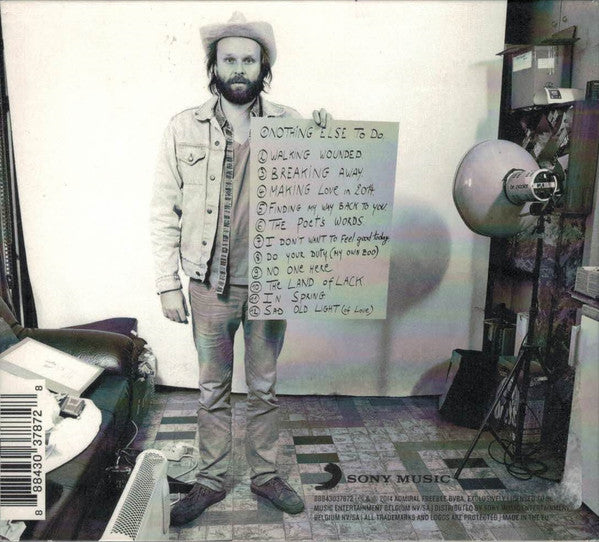 ① NOTHING ELSE TO DO
② WALKING WOUNDED
③ BREAKING AWAY
④ MAKING LOVE in 2014
⑤ FINDING MY WAY BACK TO YOU
⑥ THE POET'S WORDS
⑦ I DON'T WANT TO FEEL good today
⑧ DO YOUR DUTY (MY OWN ZOO)
⑨ NO ONE HERE
⑩ THE LAND of LACK
⑪ IN SPRING
⑫ SAD OLD LIGHT (of LOVE)
8 88430 37872 8
SONY MUSIC
88843037872 | ℗ & © 2014 ADMIRAL FREEBEE BVBA, EXCLUSIVELY LICENSED TO
MUSIC ENTERTAINMENT BELGIUM NV/SA | DISTRIBUTED BY SONY MUSIC ENTERTAINMENT
BELGIUM NV/SA | ALL TRADEMARKS AND LOGOS ARE PROTECTED | MADE IN THE EU